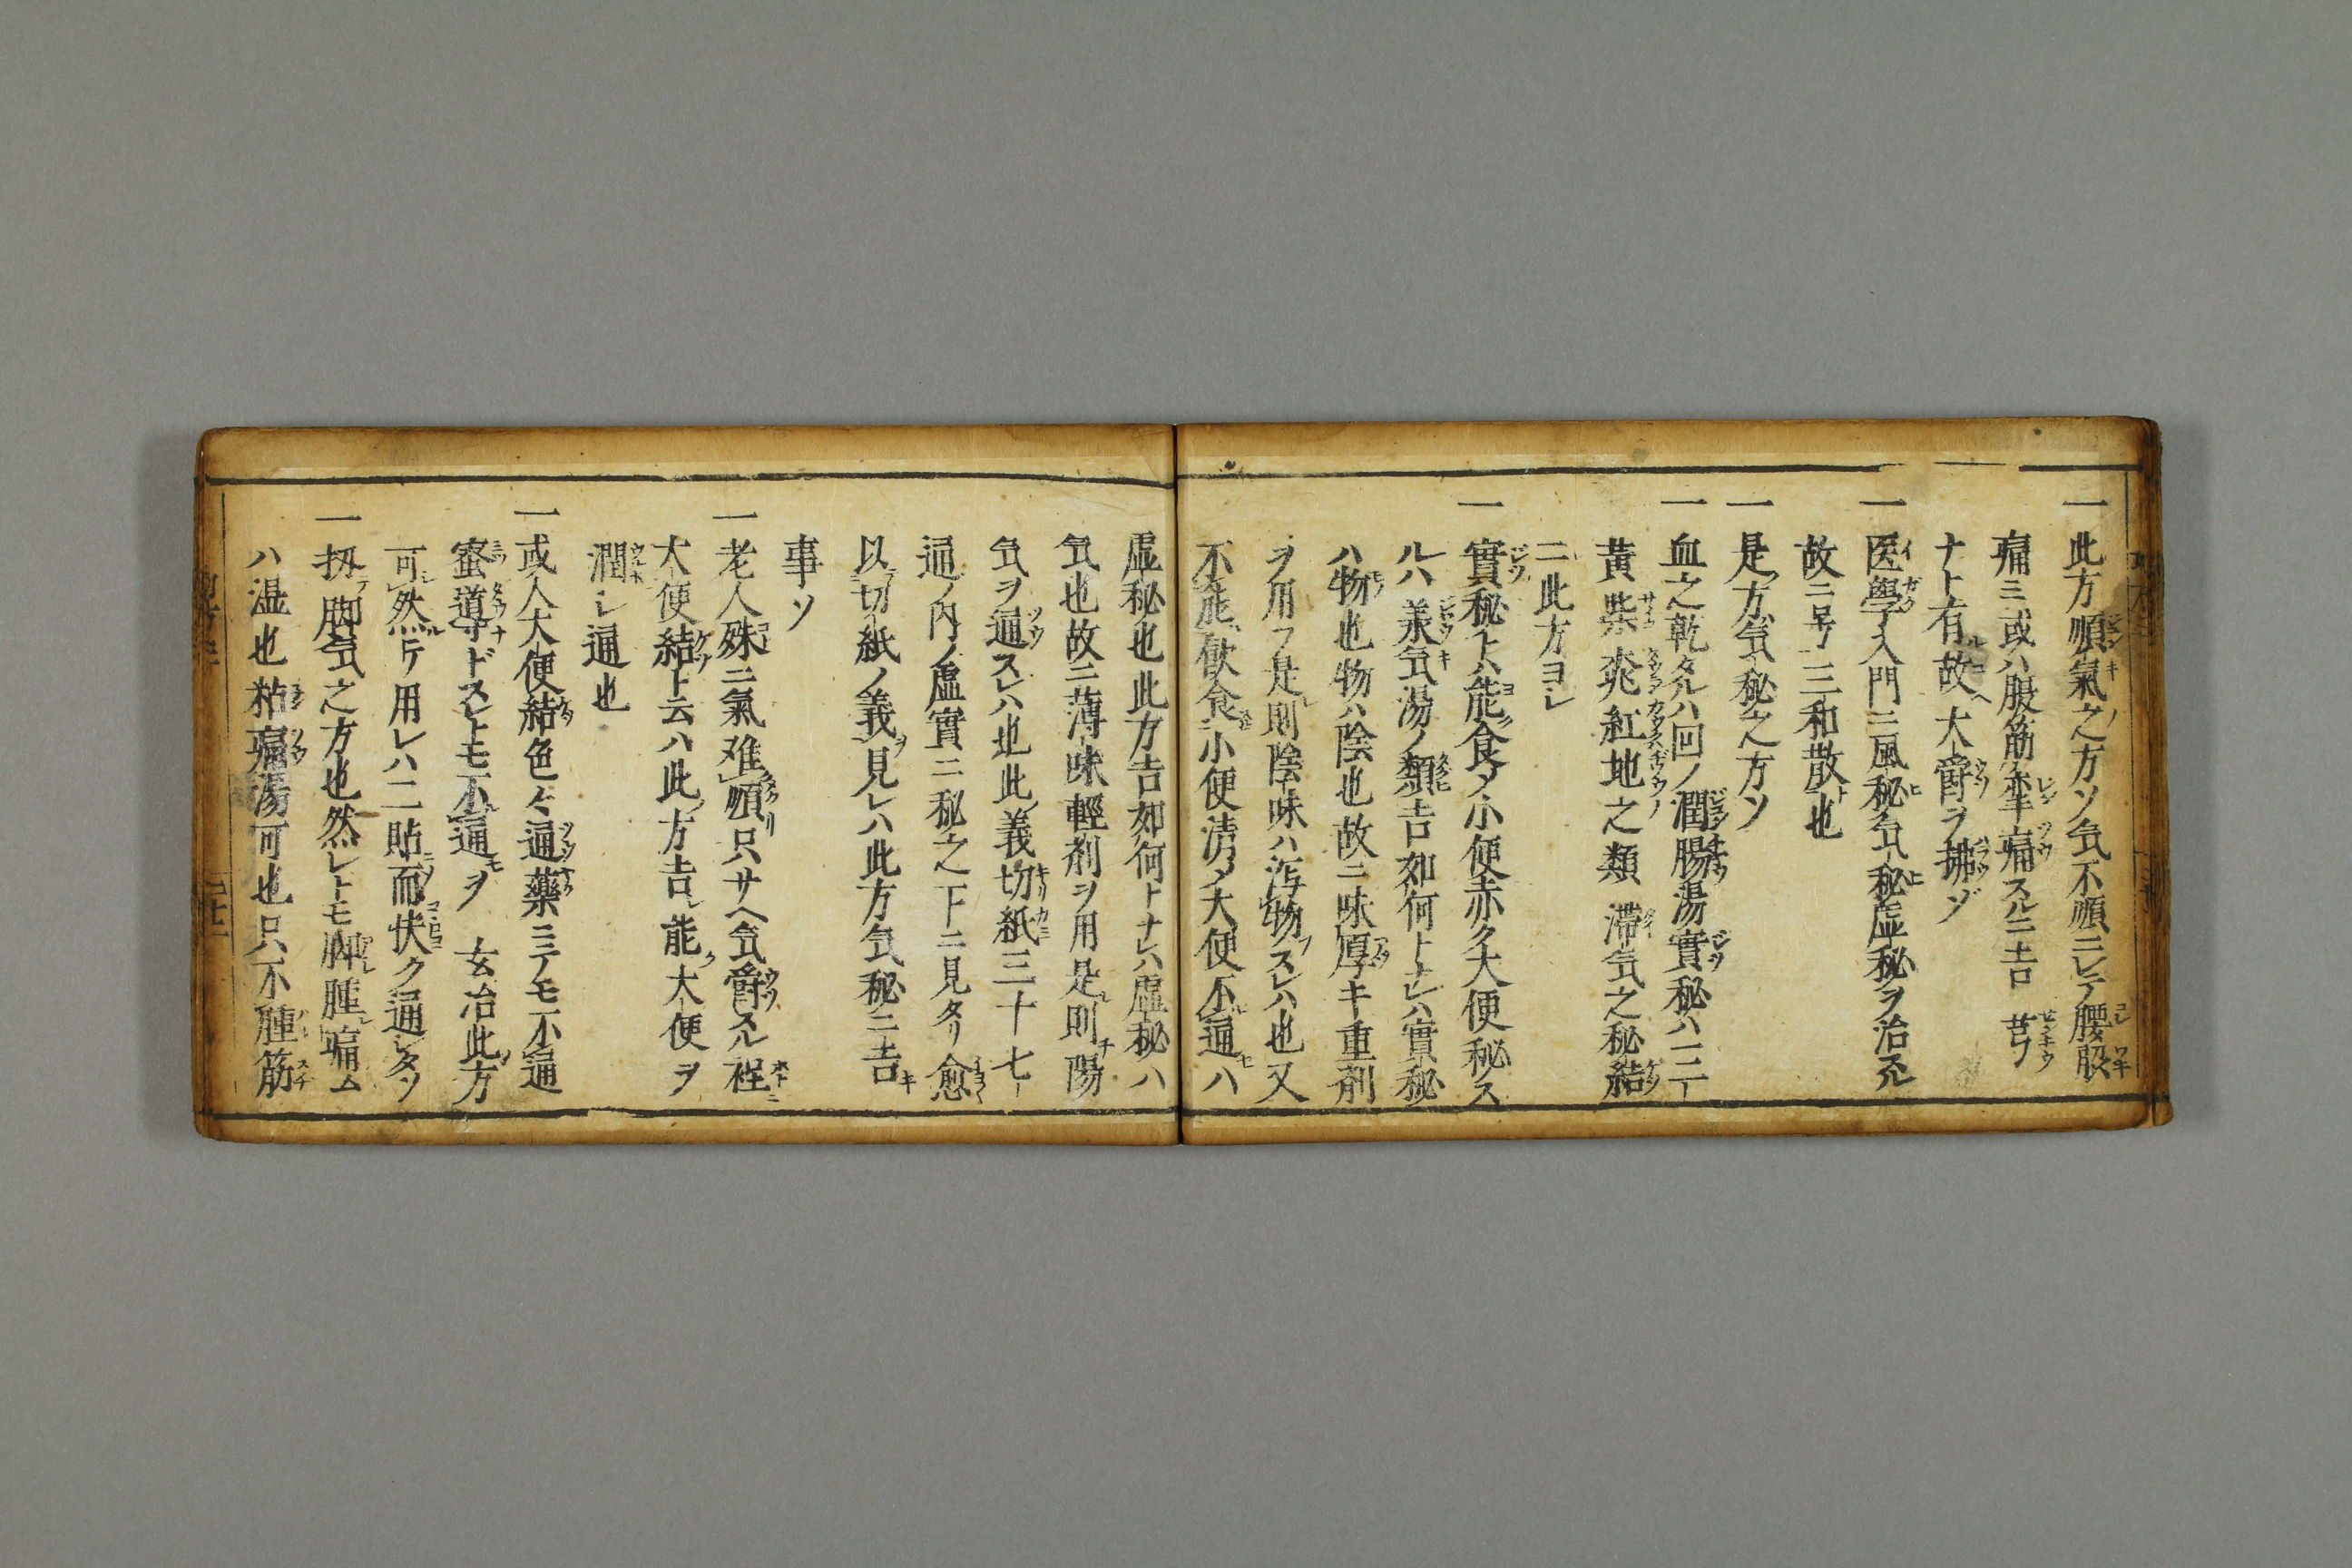 一此方順氣之方ソ気不順ニシテ腰股
痛ミ或ハ腹筋牽痛スルニ吉 芎
ナト有故ヘ大欝ヲ拂ゾ
一医學入門ニ風秘気秘虚秘ヲ治スル
故ニ号三和散也
一是方気秘之方ソ
一血之乾タルハ回ノ潤腸湯實秘ハ三一
黄柴 紅地之類 滯気之秘結
ニ此方ヨシ
一實秘トハ能食メ小便赤ク大便秘ス
ルハ 气湯ノ類吉如何トナレハ實秘
ハ物也物ハ陰也故ニ味厚キ重剤
ヲ用フ是則陰味ハ泻物スレハ也又
不能飲食ニ小便清メ大便不通ハ
虚秘也此方吉如何トナレハ虚秘ハ
気也故ニ薄味輕剤ヲ用是則陽
気ヲ通スレハ也此義切紙三十七
通ノ内ノ虚實ニ秘之下ニ見タリ愈
以切紙ノ義ヲ見レハ此方気秘ニ吉
事ソ
一老人殊ニ氣难順只サヘ気欝スル程
大便結ト云ハ此方吉能大便ヲ
潤シ通也
一或人大便結色々通藥ニテモ不通
蜜導ナドスレトモ不通モヲ 玄冶此方
可然テ用レハ二貼而快ク通シタソ
一扨脚気之方也然レトモ 腫痛ム
ハ湿也粘痛湯可也只不腫筋